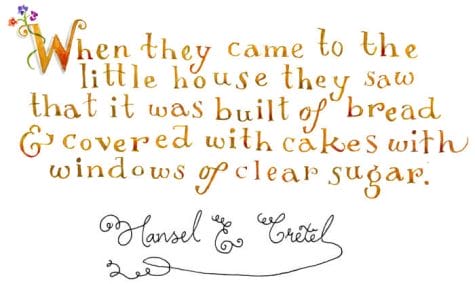 When they came to the
little house they saw
that it was built of bread
& covered with cakes with
windows of clear sugar.
Hansel & Gretel